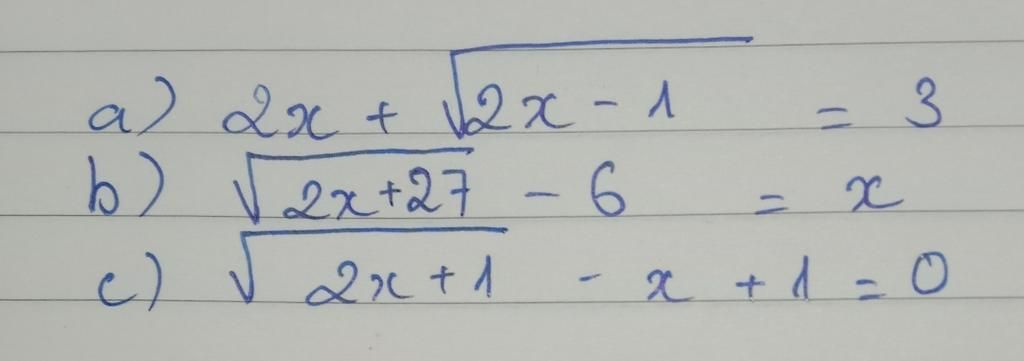 a) 2x + √(2x - 1) = 3
b) √(2x+27) - 6 = x
c) √(2x+1) - x + 1 = 0